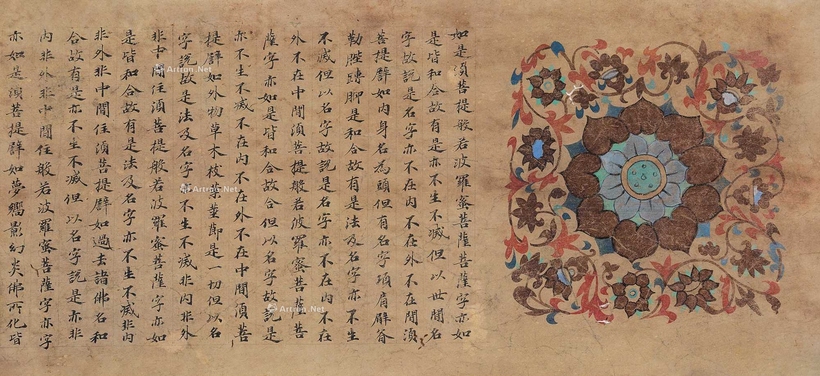 如是須菩提般若波羅蜜菩薩菩薩字亦如
是皆和合故有是亦不生不滅但以世間名
字故說是名字亦不在內不在外不在中間須
菩提譬如內身名為頭但有名字項肩臂脊
脚是和合故有是法及名字亦不生
不滅但以名字故說是名字亦不在內不在
外不在中間須菩提般若波羅蜜菩薩菩
薩字亦如是皆和合故合但以名字故說是
亦不生不滅不在內不在外不在中間須菩
提譬如外物草木枝葉莖節是一切但以名
字說故是法及名字亦不生不滅非內非外
非中間住須菩提般若波羅蜜菩薩字亦如
是皆和合故有是法及名字亦不生不滅非內
非外非中間住須菩提譬如過去諸佛名和
合故有是亦不生不滅但以名字說是亦非
內非外非中間住般若波羅蜜菩薩字亦字
亦如是須菩提譬如夢響影幻炎佛所化皆
Artron.Net
Artron.Net
Artron.Net
Artron.Net